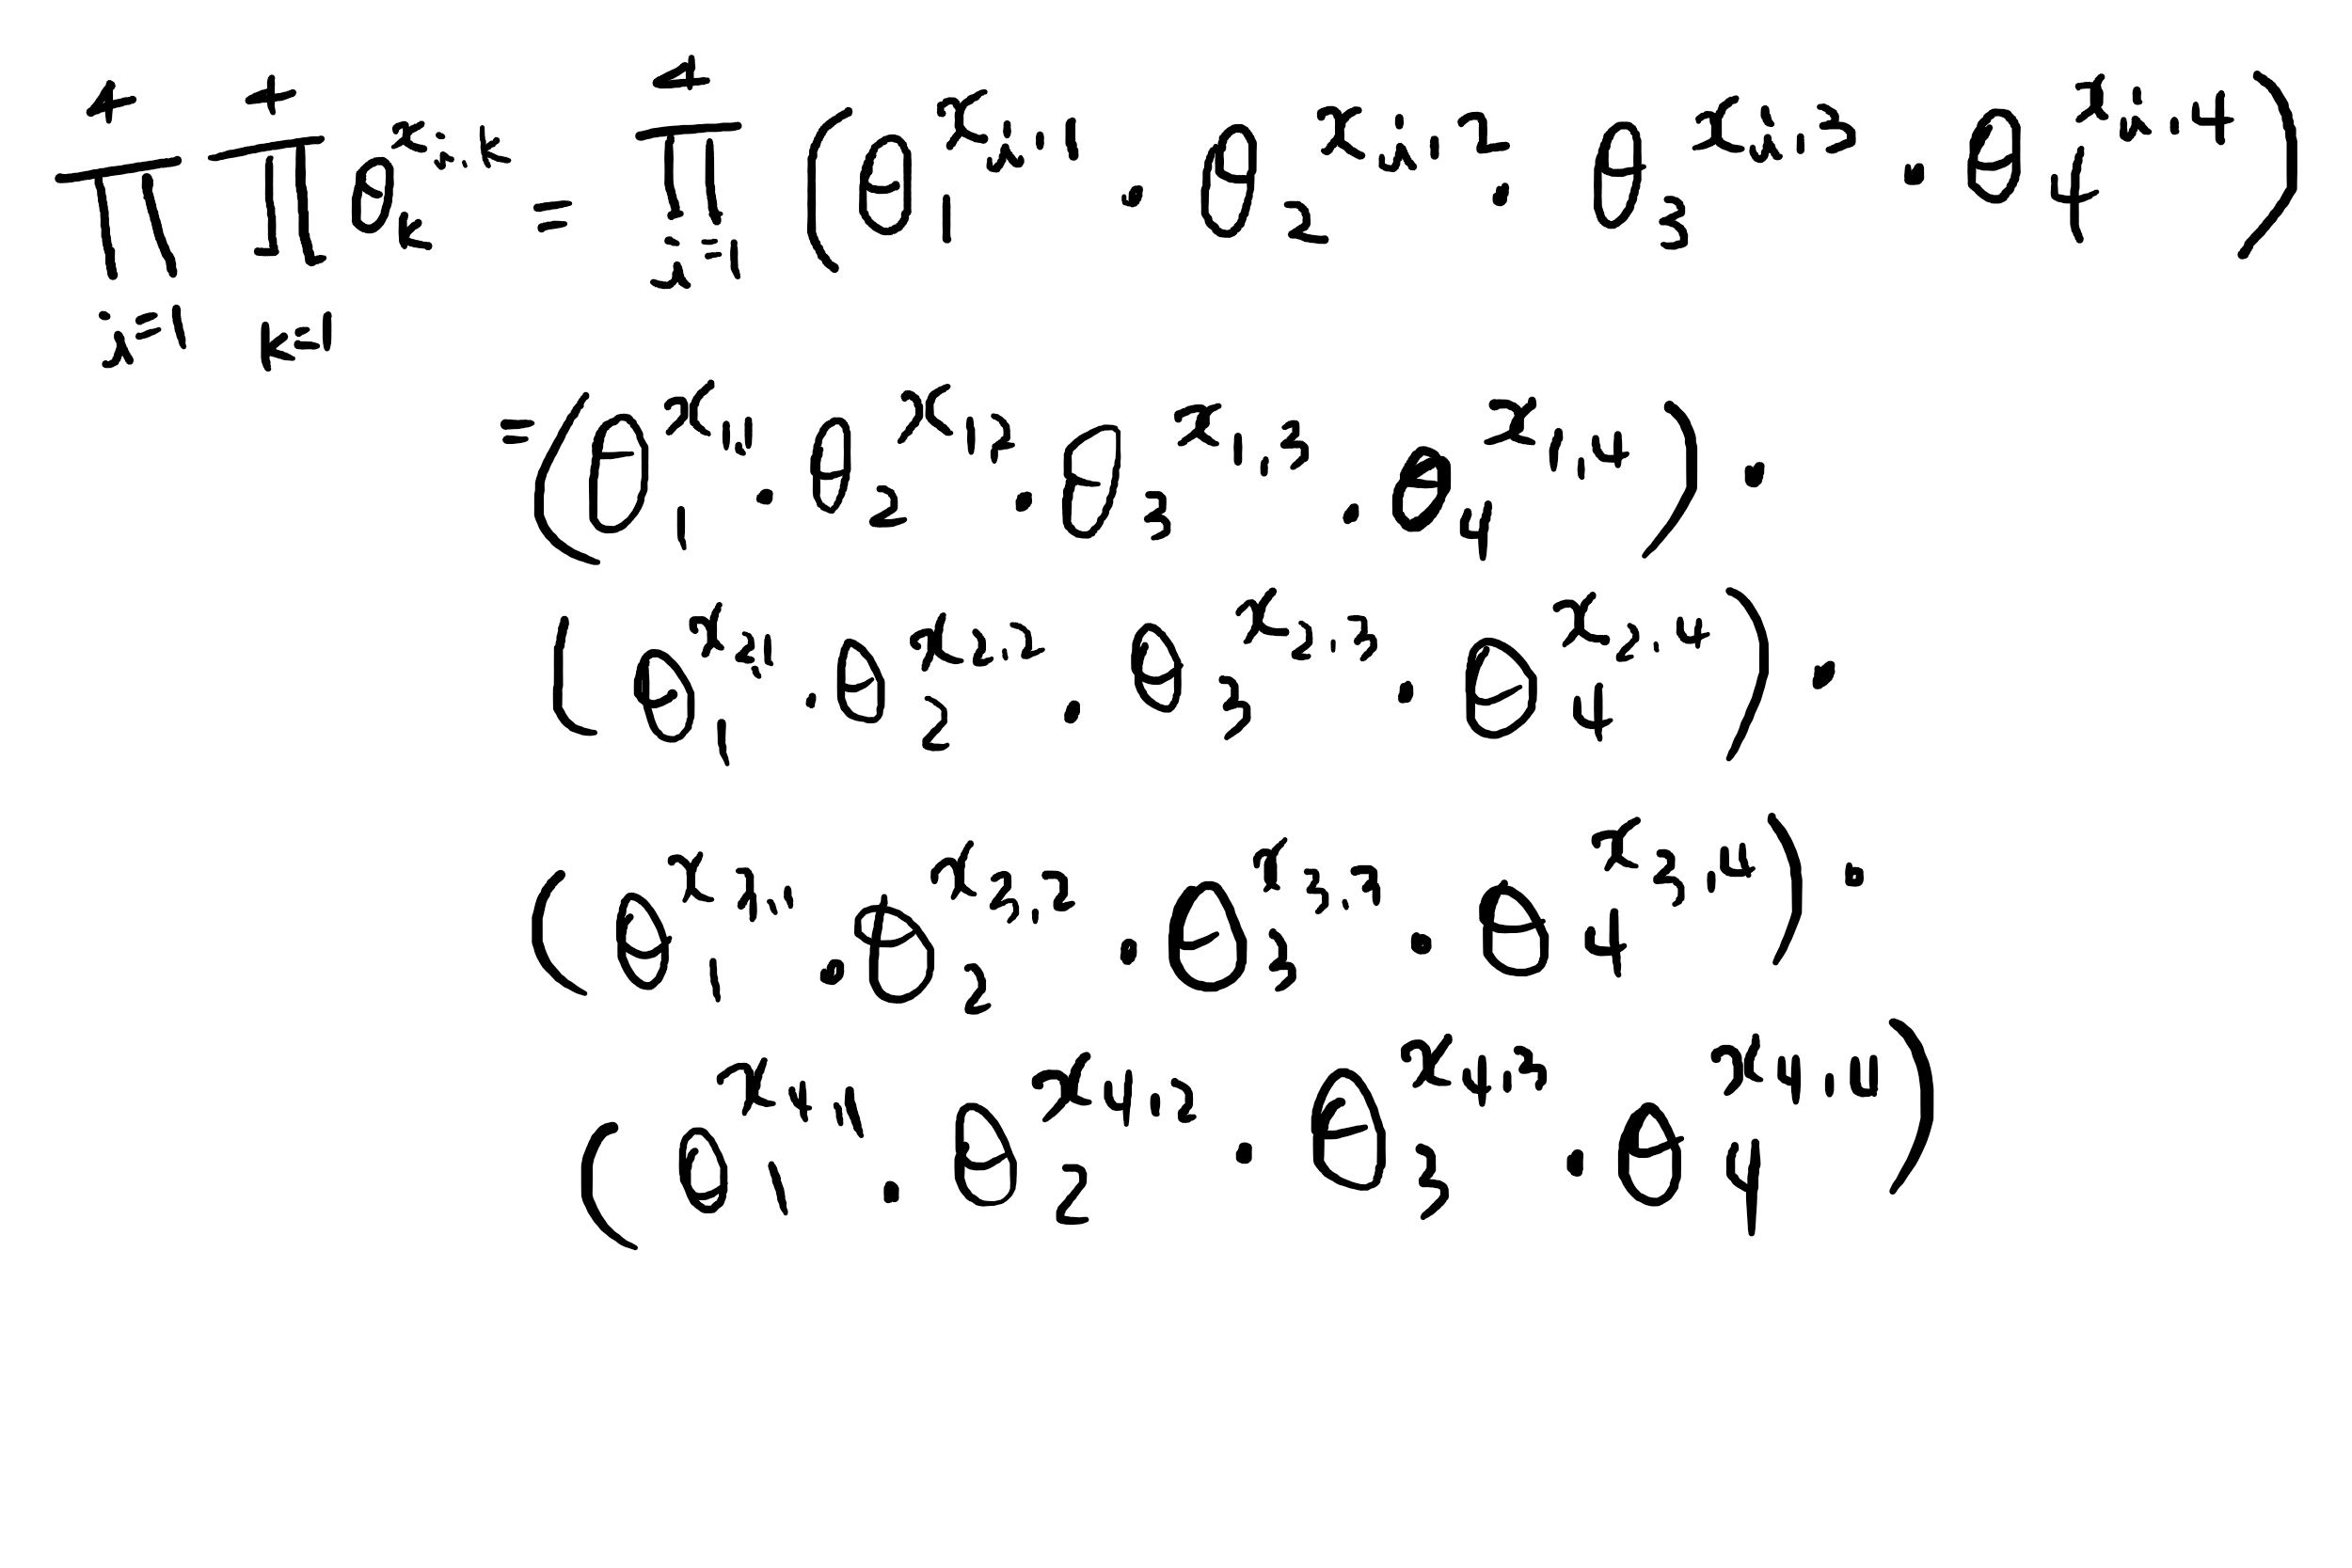 $\prod_{i=1}^{4} \prod_{k=1}^{4} \theta_k^{x_{i,k}} = \prod_{i=1}^{4} \left( \theta_1^{x_{i,1}} \cdot \theta_2^{x_{i,2}} \cdot \theta_3^{x_{i,3}} \cdot \theta_4^{x_{i,4}} \right)$
$= \left( \theta_1^{x_{1,1}} \cdot \theta_2^{x_{1,2}} \cdot \theta_3^{x_{1,3}} \cdot \theta_4^{x_{1,4}} \right) \cdot$
$\left( \theta_1^{x_{2,1}} \cdot \theta_2^{x_{2,2}} \cdot \theta_3^{x_{2,3}} \cdot \theta_4^{x_{2,4}} \right) \cdot$
$\left( \theta_1^{x_{3,1}} \cdot \theta_2^{x_{3,2}} \cdot \theta_3^{x_{3,3}} \cdot \theta_4^{x_{3,4}} \right) \cdot$
$\left( \theta_1^{x_{4,1}} \cdot \theta_2^{x_{4,2}} \cdot \theta_3^{x_{4,3}} \cdot \theta_4^{x_{4,4}} \right)$